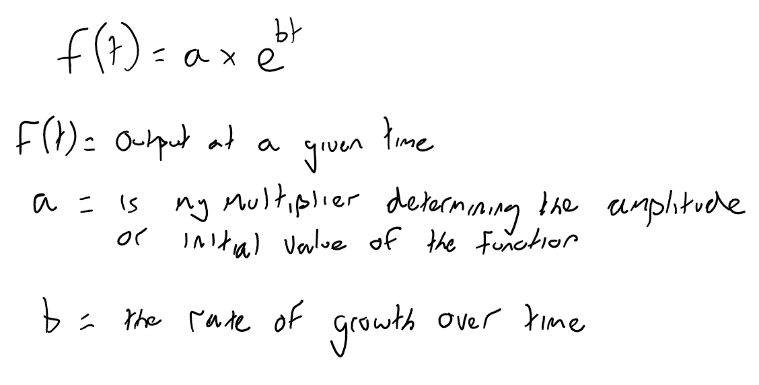 f(t) = a × e^bt
F(t) = Output at a given time
a = is my multiplier determining the amplitude
or initial value of the function
b = the rate of growth over time